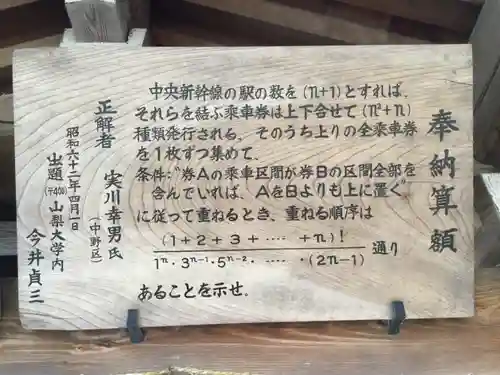 奉納算額
中央新幹線の駅の数を(n+1)とすれば、
それらを結ぶ乗車券は上下合せて(n²+n)
種類発行される。そのうち上りの全乗車券
を1枚ずつ集めて、
条件:"券Aの乗車区間が券Bの区間全部を
含んでいれば、AをBよりも上に置く"
に従って重ねるとき、重ねる順序は
(1+2+3+‥‥+n)!
1ⁿ·3ⁿ⁻¹·5ⁿ⁻²·‥‥·(2n-1)
通り
あることを示せ.
正解者 実川幸男氏
(中野区)
昭和六十二年四月一日
出題(〒400)山梨大学内
今井貞三